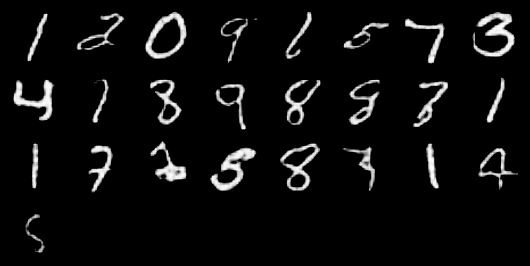 1 2 0 9 5 7 3
4 8 9 8 8 1
1 7 5 8 1 4
5